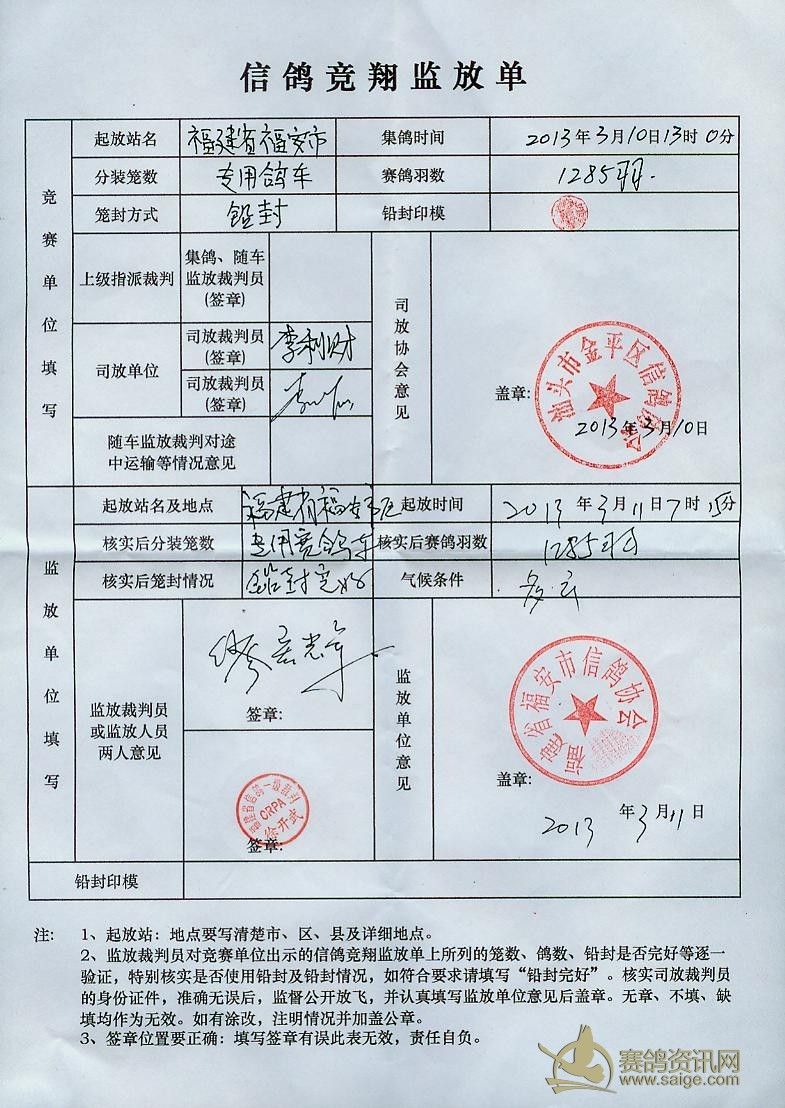 信鸽竞翔监放单
竞赛单位填写
起放站名 福建省福安市 集鸽时间 2013年3月10日13时0分
分装笼数 专用鸽车 赛鸽羽数 1285羽.
笼封方式 铅封 铅封印模
上级指派裁判 集鸽、随车监放裁判员(签章)
司放单位 司放裁判员(签章) 李利财
司放裁判员(签章)
随车监放裁判对途中运输等情况意见
司放协会意见
汕头市金平区信鸽协会
盖章: 2013年3月10日
监放单位填写
起放站名及地点 福建省福安 起放时间 2013年3月11日7时15分
核实后分装笼数 专用赛鸽车 核实后赛鸽羽数 1285羽
核实后笼封情况 铅封完好 气候条件 多云
监放裁判员或监放人员两人意见
签章:
福建省信鸽一级裁判
CRPA
徐开武
签章:
监放单位意见
福建省福安市信鸽协会
盖章:
2013年3月11日
铅封印模
注: 1、起放站:地点要写清楚市、区、县及详细地点。
2、监放裁判员对竞赛单位出示的信鸽竞翔监放单上所列的笼数、鸽数、铅封是否完好等逐一
验证,特别核实是否使用铅封及铅封情况,如符合要求请填写“铅封完好”。核实司放裁判员
的身份证件,准确无误后,监督公开放飞,并认真填写监放单位意见后盖章。无章、不填、缺
填均作为无效。如有涂改,注明情况并加盖公章。
3、签章位置要正确:填写签章有误此表无效,责任自负。
赛鸽资讯网
www.saige.com